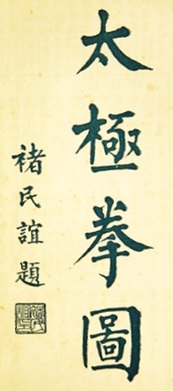 太極拳圖
褚民誼題